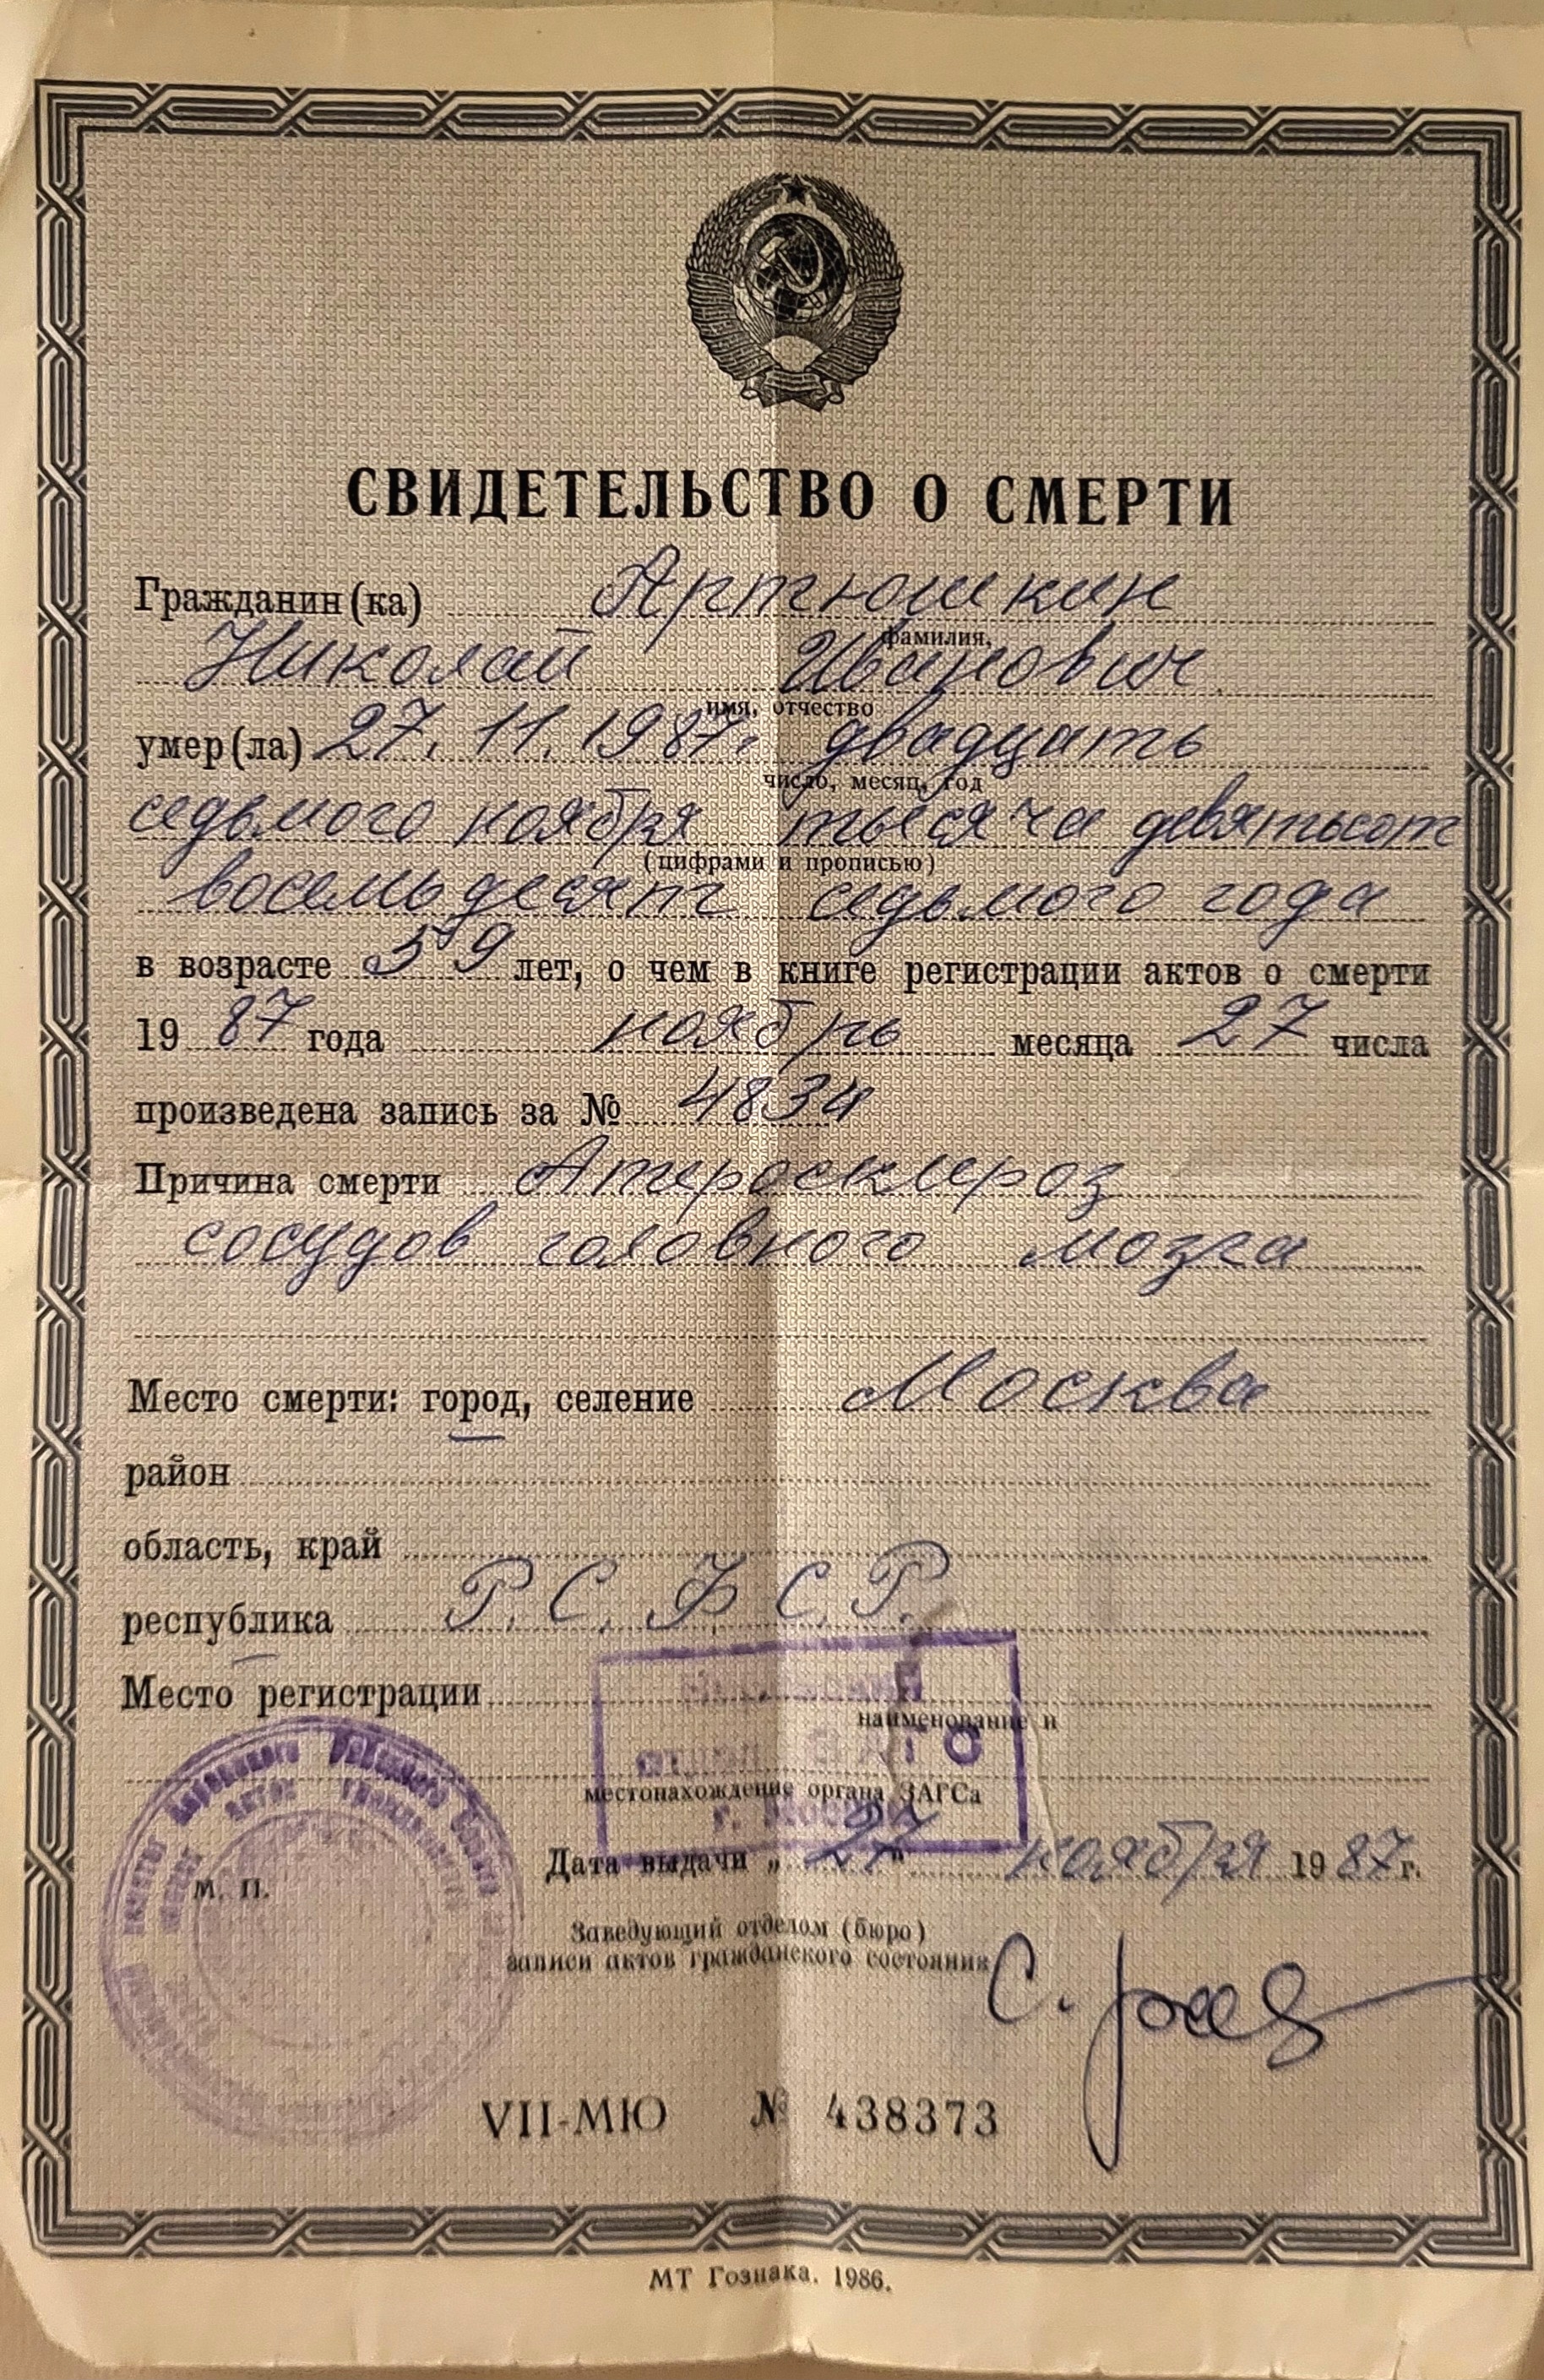 СВИДЕТЕЛЬСТВО О СМЕРТИ
Гражданин(ка) Артюшкин
фамилия,
Николай Иванович
имя, отчество
умер(ла) 27. 11. 1987. двадцать
число, месяц, год
седьмого ноября тысяча девятьсот
(цифрами и прописью)
восемьдесят седьмого года
в возрасте 59 лет, о чем в книге регистрации актов о смерти
19 87 года ноябрь месяца 27 числа
произведена запись за № 4834
Причина смерти Атеросклероз
сосудов головного мозга
Место смерти: город, селение Москва
район
область, край
республика Р. С. Ф. С. Р.
Место регистрации
наименование и
местонахождение органа ЗАГСа
Дата выдачи „ 27 " ноября 19 87 г.
М. П.
Заведующий отделом (бюро)
записи актов гражданского состояния
VII-МЮ № 438373
МТ Гознака. 1986.